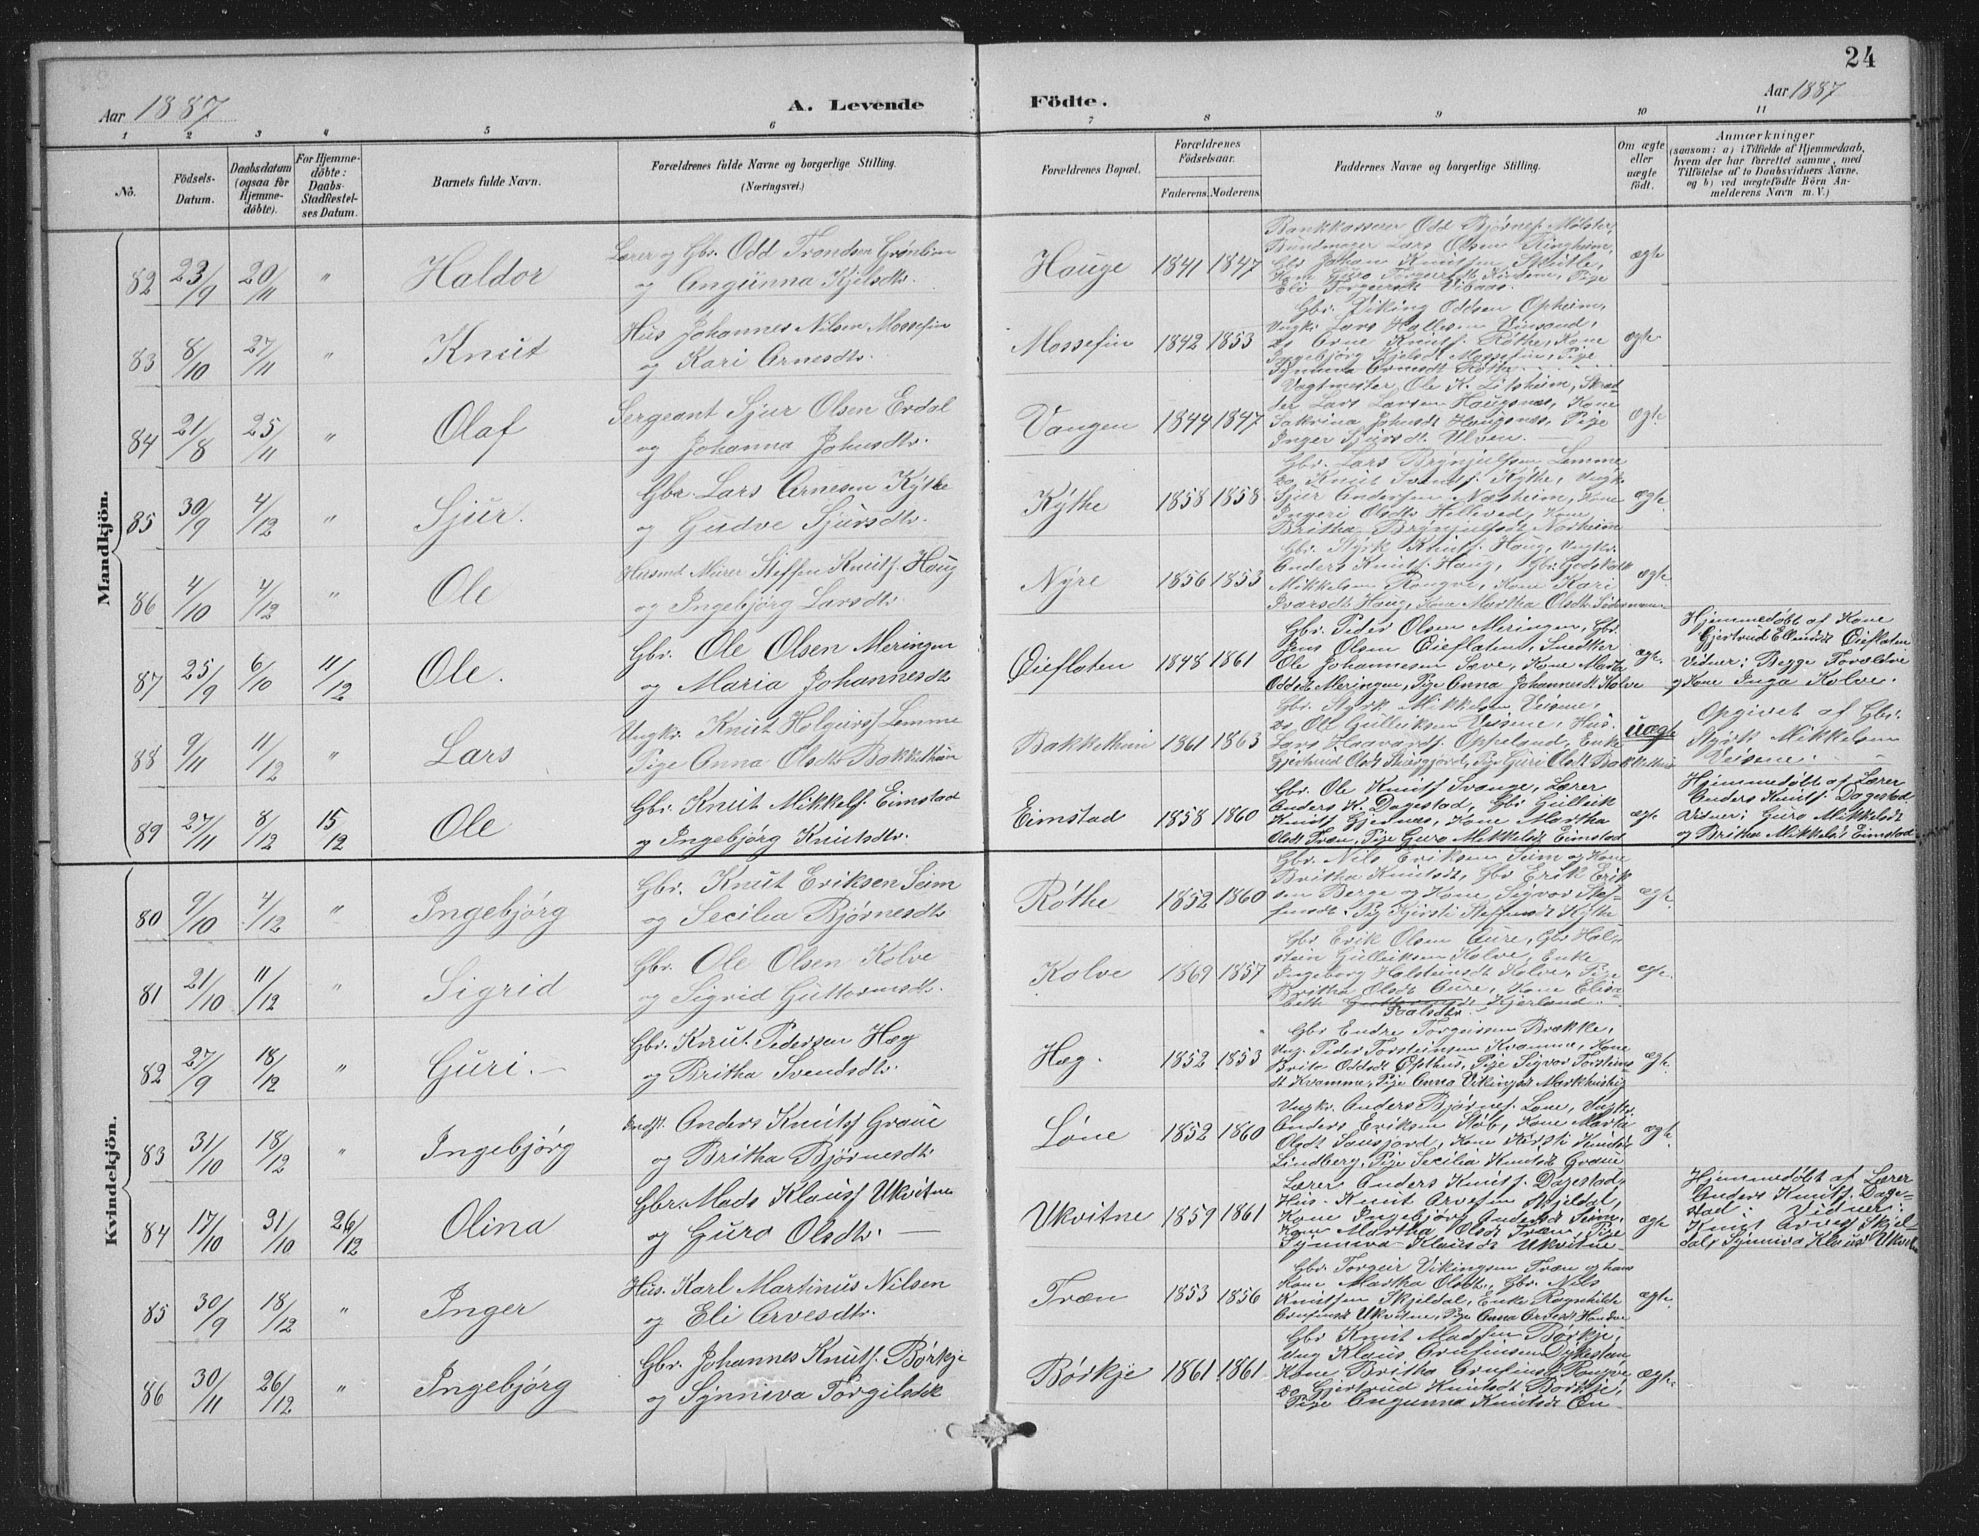 24
Aar 1887
A. Levende
Födte.
Aar 1887
1 2 3 4 5 6 7 8 9 10 11
No.
Födsels-Datum.
Daabsdatum (ogsaa för Hjemme-döbte).
For Hjemme-döbte: Daabs-Stadfæstel-ses Datum.
Barnets fulde Navn.
Forældrenes fulde Navne og borgerlige Stilling. (Næringsvei.)
Forældrenes Bopæl.
Forældrenes Födselsaar.
Faderens. Moderens.
Faddernes Navne og borgerlige Stilling.
Om ægte eller uægte födt.
Anmærkninger
(saasom: a) i Tilfælde af Hjemmedaab, hvem der har forrettet samme, med Tilföielse af to Daabsvidners Navne, og b) ved uægtefödte Börn An-melderens Navn m. V.)
Mandkjön.
82 23/9 20/11 " Haldor
Lærer og Gbr. Odd Trondsen Grönlien
og Angunna Kjelsdtr.
Hauge 1841 1847
Bankkasserer Odd Björnsf. Mölster,
Bundmager Lars Olsen Ringheim,
Gbr Johan Knutsen Skutle,
ægte
83 8/10 27/11 " Knut
Hus Johannes Nilsen Mossefin
og Kari Arnesdtr.
Mossefin 1842 1853
Gbr. Viking Oddsen Opheim,
Ungk. Lars Hallesen Vinsand,
Do Arne Knutsf. Röthe, Kone
Ingebjörg Kjelsdt Mossefin, Pige
Synneva Arnesdt Röthe
ægte.
84 21/8 25/11 " Olaf
Sergeant Sjur Olsen Erdal
og Johanna Johnsdtr.
Vangen 1844 1847
Vagtmester Ole K. Lidsheim, Skræd-
der Lars Larsen Haugsnes, Kone
Sakrina Johnsdt Haugsnes, Pige
Inger Sjursdt Ulven.
ægte.
85 30/9 4/12 " Sjur.
Gbr. Lars Arnesen Kythe
og Gudve Sjursdtr.
Kythe 1858 1858
Gbr. Lars Brynjulfsen Lemme,
Do Knut Svendsf. Kythe, Ungk.
Sjur Andersen Næsheim, Kone
Ingeri Olsdtr Helleved, Kone
Britha Brynjulfsdt Norheim
ægte
86 4/10 4/12 " Ole
Husmd Murer Steffen Knutsf. Haug
og Ingebjörg Larsdtr.
Nyre 1856 1853
Gbr. Styrk Knutsf. Haug, Ungkr.
Anders Knutsf. Haug, Gbr. Godskalk
Mikkelsen Rongve, Kone Kari
Ivarsdt Haug, Kone Martha Olsdt
ægte
87 25/9 6/10 11/12 Ole.
Gbr. Ole Olsen Meringen
og Maria Johannesdtr
Öieflaten 1848 1861
Gbr. Peder Olsen Meringen, Gbr.
Jens Olsen Öieflaten, Snedker
Ole Johannesen Sæve, Kone Marta
Oddsdt Meringen, Pige Anna Johannesdt Kolve
ægte.
Hjemmedøbt af Kone
Gjertrud Ellinsdt Öieflaten
Vidner: Begge Forældre
og Kone Inga Kolve.
88 9/11 11/12 " Lars
Ungkr. Knut Holgeirsf Lemme
Pige Anna Olsdtr Bakkethun
Bakkethun 1861 1863
Gbr. Styrk Mikkelsen Veisene,
Do Ole Gulleiksen Veisene, Hus.
Lars Haavardsf. Oppeland, Enke
Gjertrud Olsdt Skiærgjord, Pige Guri Olsdt Bakkethun
uægte
Opgivet af Gbr.
Styrk Mikkelsen
Veisene.
89 27/11 8/12 15/12 Ole
Gbr. Knut Mikkelsf. Eimstad
og Ingebjörg Knutsdtr.
Eimstad 1858 1860
Gbr. Ole Knutsf Svange, Lærer
Anders K. Dagestad, Gbr Gulleik
Knutsf Gjernes, Kone Martha
Olsdt Træn, Pige Guro Mikkelsdt Eimstad
ægte
Hjemmedøbt af Lærer
Anders Knutsf. Dagestad
Vidner: Guro Mikkelsdt
og Britha Mikkelsdt Eimstad
Kvindekjön.
80 9/10 4/12 " Ingebjörg
Gbr. Knut Eriksen Seim
og Secilia Björnesdtr
Röthe 1852 1860
Gbr. Nils Eriksen Seim og Kone
Britha Knutsdt, Gbr Erik Erik-
sen Berge og Kone Sigvor Stef-
fensdt. Pig Kjersti Steffensdt Kythe
ægte.
81 21/10 11/12 " Sigrid
Gbr. Ole Olsen Kolve
og Sigrid Guttormsdtr.
Kolve 1869 1857
Gbr Erik Olsen Aure, Gbr Hal-
stein Gulleiksen Kolve, Enke
Ingeborg Halsteinsdt Kolve, Pige
Britha Olsdt Aure, Kone Elisa-
beth Kjerland.
ægte.
82 27/9 18/12 " Guri.
Gbr. Knut Pedersen Hæg
og Britha Svendsdtr.
Hæg. 1852 1853
Gbr Endre Torgeirsen Brække,
Ung. Peder Torsteinsen Kvamme, Kone
Brita Oddsdt Opthus, Pige Sigvor Torsteins-
dt Kvamme, Pige Anna Vikingsdt Markhusteig
ægte.
83 31/10 18/12 " Ingebjörg
Indst. Anders Knutsf Graue
og Britha Björnesdtr.
Löne 1852 1860
Ungkr. Anders Björnsf. Löne, Ungkr.
Anders Eriksen Støb, Kone Marta
Olsdt Sausjord, Kone Kirsti Knutsdt
Lindberg, Pige Secilia Knutsdt Graue
ægte.
84 17/10 31/10 26/12 Olina
Gbr. Mads Klausf Ukvitne
og Guro Olsdtr.
Ukvitne 1859 1861
Lærer Anders Knutsf. Dagestad,
Hus. Knut Arvesen Skjeldal,
Kone Ingebjörg Andersdt Seim,
Kone Martha Olsdt Træn, Pige
Synneva Klausdt Ukvitne
ægte
Hjemmedøbt af Lærer
Anders Knutsf. Dage-
stad. Vidner:
Knut Arvesf Skjel-
dal, Synneva Klausdt Ukvitne
85 30/9 18/12 " Inger
Hus. Karl Martinus Nilsen
og Eli Arvesdtr.
Træn 1853 1856
Gbr. Torgeir Vikingsen Træn og hans
Kone Martha Olsdtr, Gbr. Nils
Knutsen Skjeldal, Enke Ragnhilde
Arnfinsdt Ukvitne, Pige Anna Arvesdt Handve
ægte.
86 30/11 26/12 " Ingebjörg
Gbr. Johannes Knutsf. Börkje
og Synneva Torgilsdtr
Börkje 1861 1861
Gbr Knut Madsen Börkje,
Ung Klaus Arnfinsen Dykestøn
Kone Britha Arnfinsdt Rongve,
Do Gjertrud Knutsdt Borkje,
Pige Angunna Knutsdt
ægte.